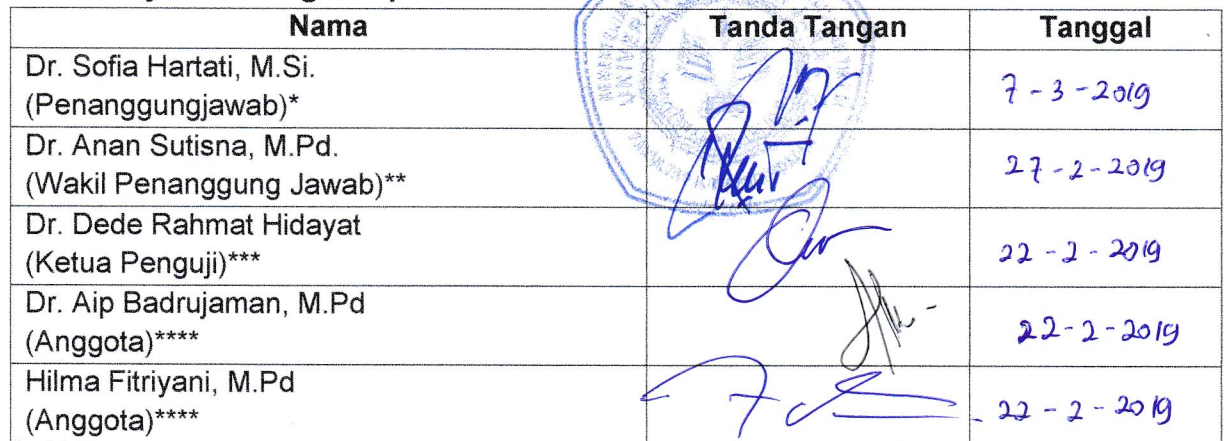 Nama Tanda Tangan Tanggal
Dr. Sofia Hartati, M.Si.
(Penanggungjawab)* 7-3-2019
Dr. Anan Sutisna, M.Pd.
(Wakil Penanggung Jawab)** 27-2-2019
Dr. Dede Rahmat Hidayat
(Ketua Penguji)*** 22-2-2019
Dr. Aip Badrujaman, M.Pd
(Anggota)**** 22-2-2019
Hilma Fitriyani, M.Pd
(Anggota)**** 22-2-2019